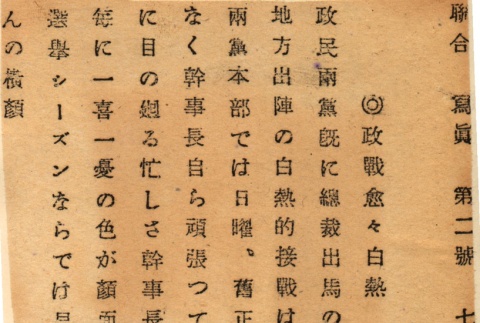 聯合 寫眞 第二號 七
◎政戰愈々白熱
政民兩黨旣に總裁出馬の
地方出陣の白熱的接戰は
兩黨本部では日曜。舊正
なく幹事長自ら頑張つて
に目の廻る忙しさ幹事長
每に一喜一憂の色が顏面
選擧シーズンならでは見
んの橫顏